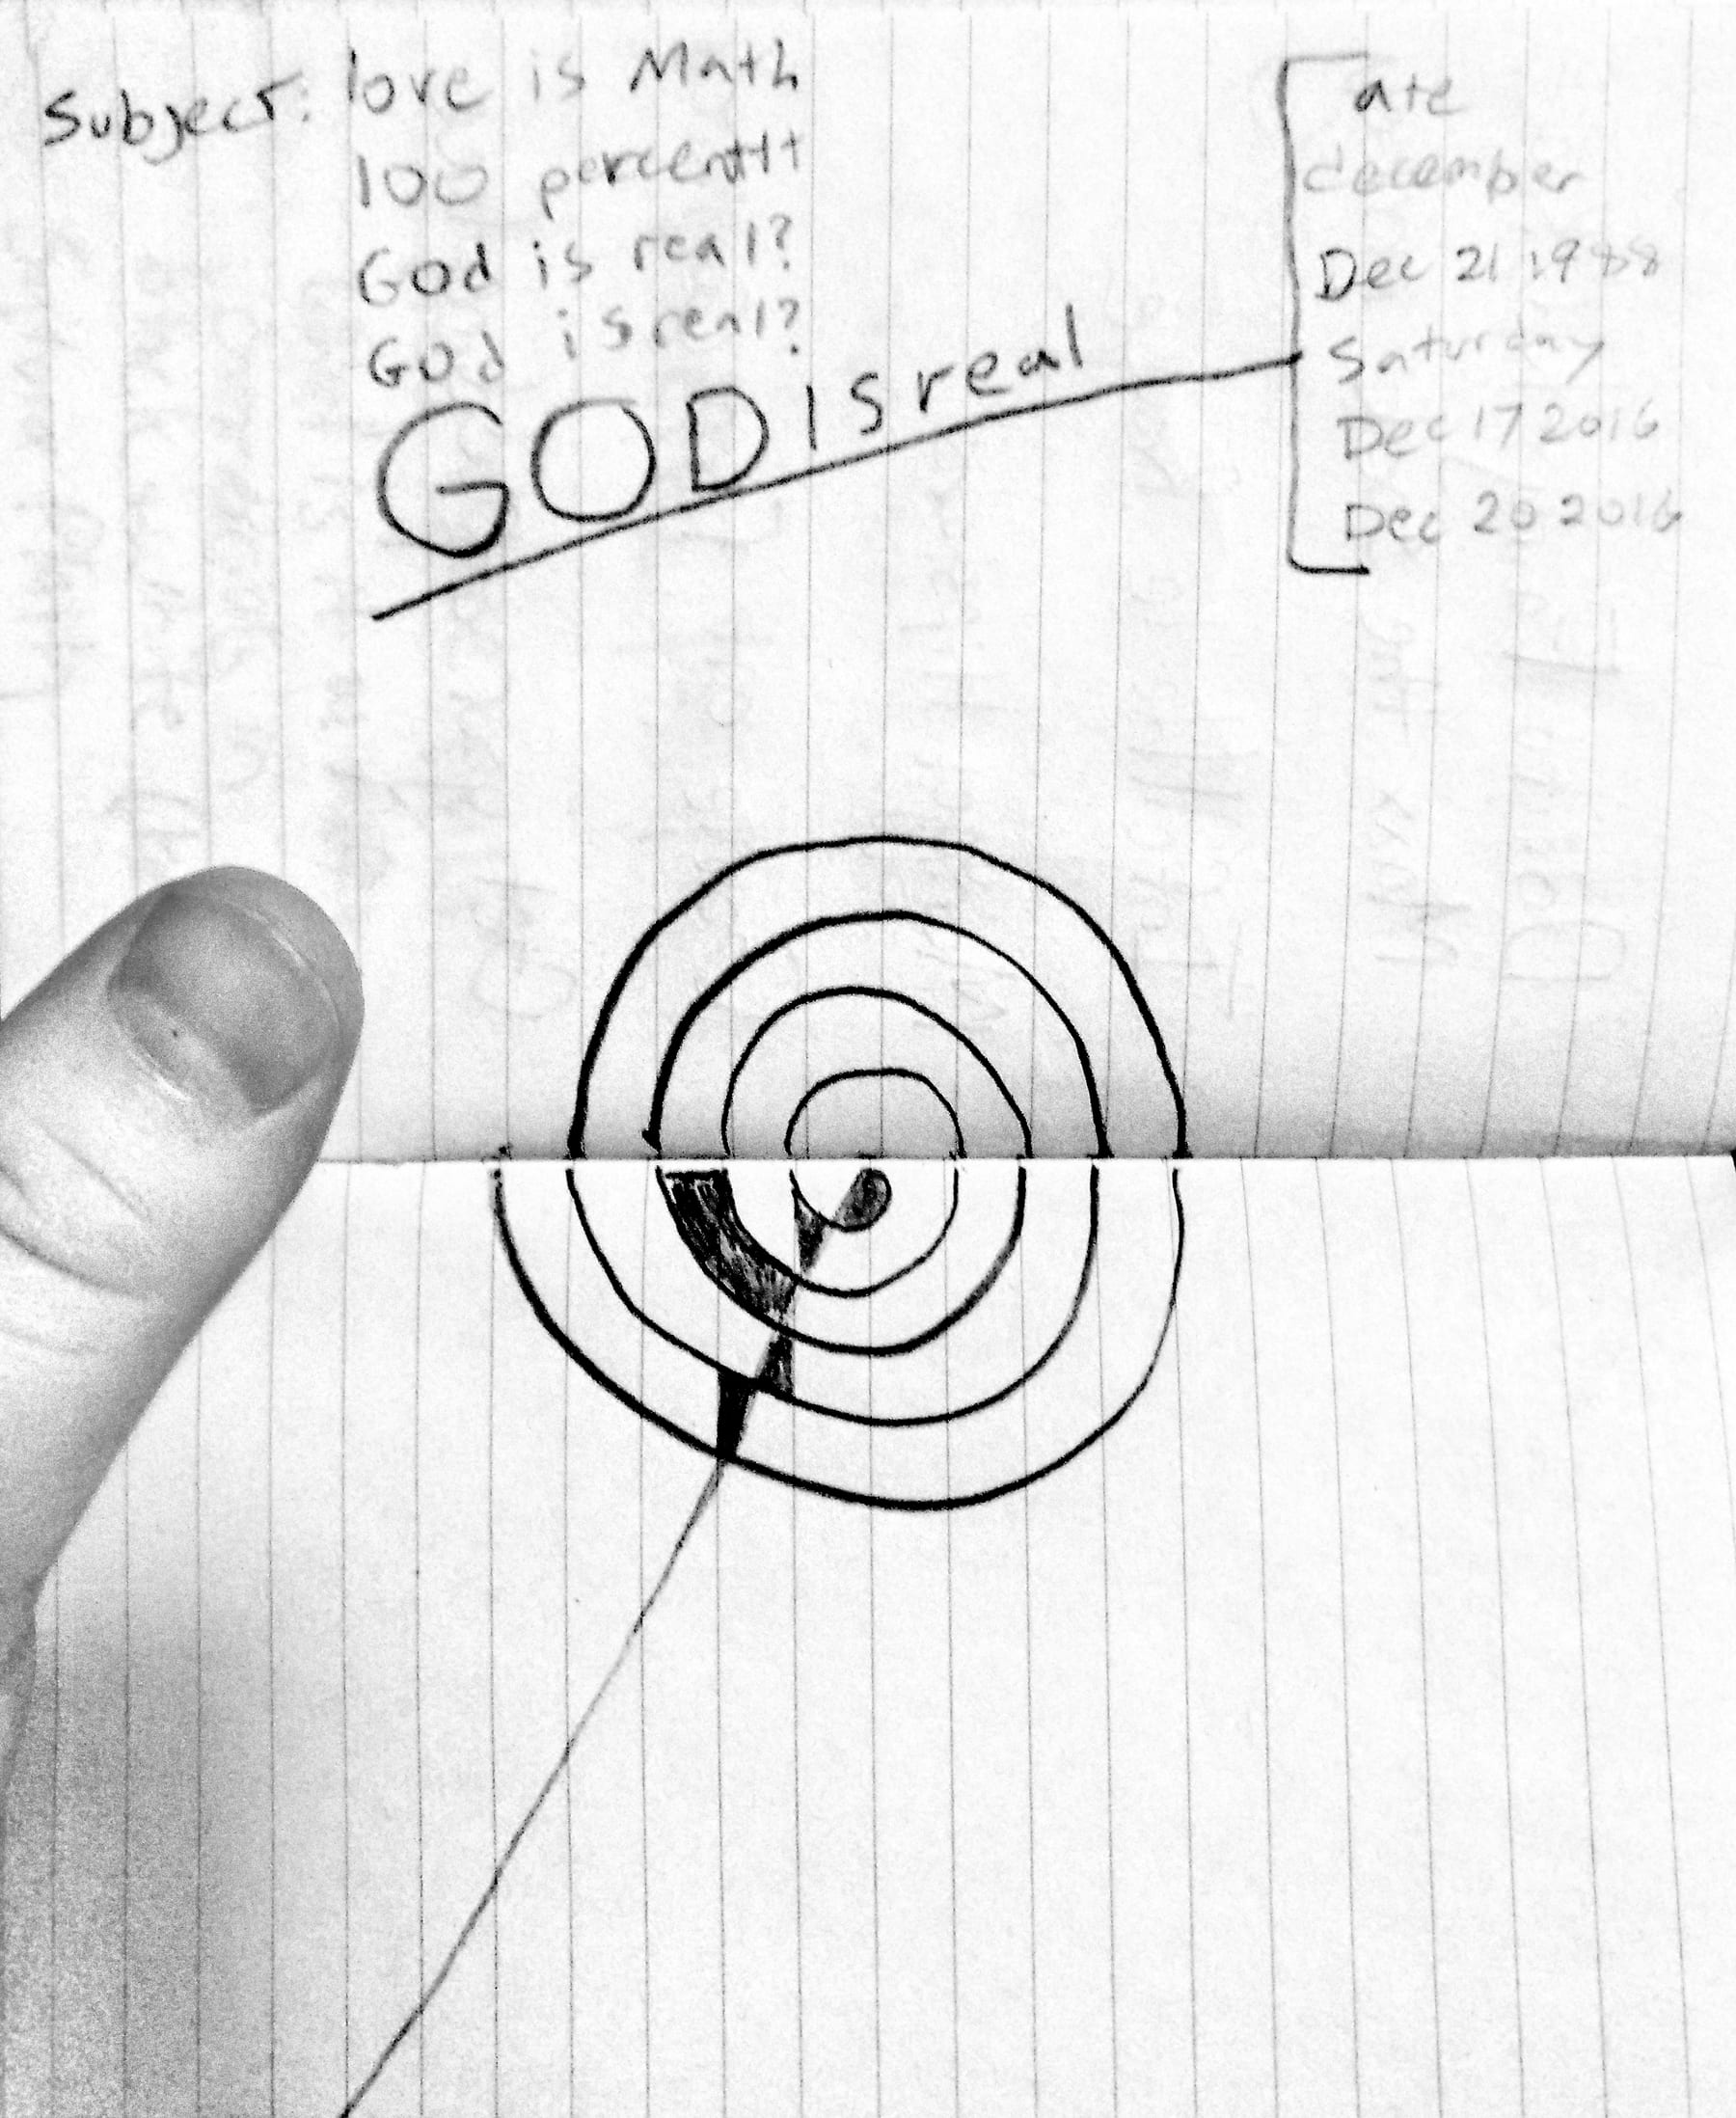 Subject: love is Math
100 percent!!
God is real?
God is real?
GOD is real
ate
december
Dec 21 1988
Saturday
Dec 17 2016
Dec 20 2016